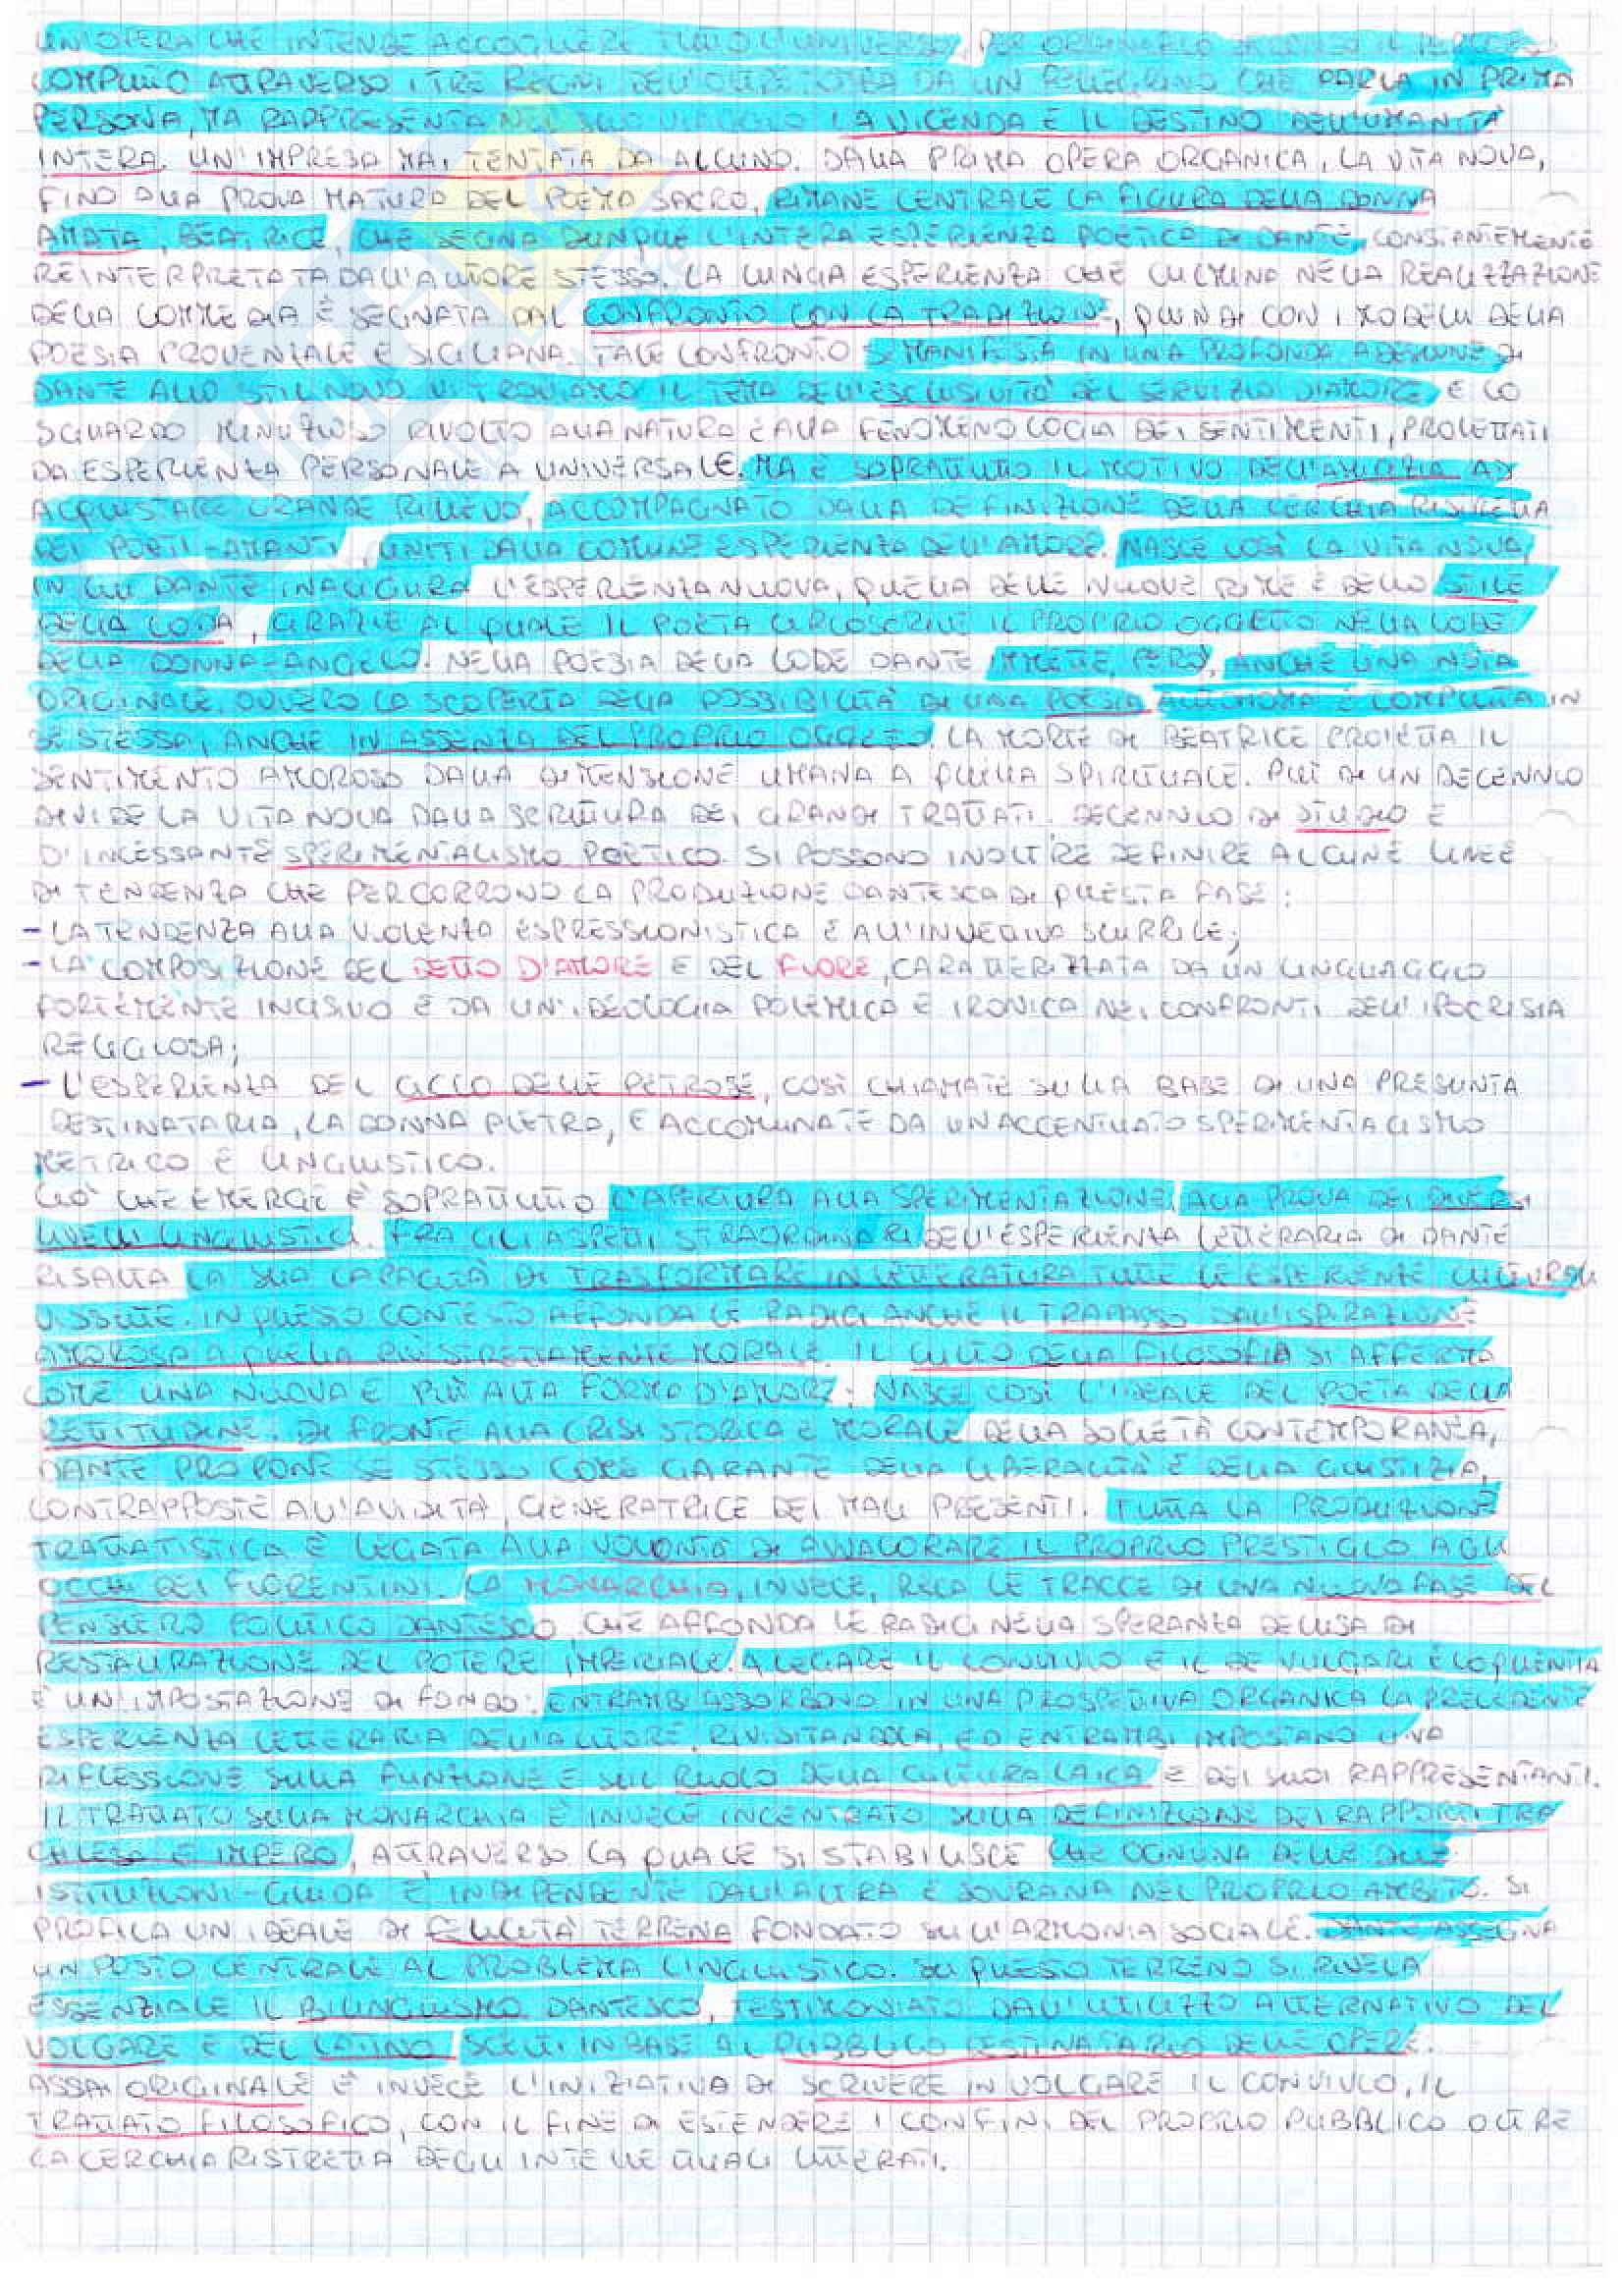 UN'OPERA CHE INTENDE ACCOGLIERE TUTTO L'UNIVERSO, PER ORDINARLO SECONDO IL PERCORSO
COMPIUTO ATTRAVERSO I TRE REGNI DELL'OLTRETOMBA DA UN PELLEGRINO CHE PARLA IN PRIMA
PERSONA, MA RAPPRESENTA NEL SUO VIAGGIO LA VICENDA E IL DESTINO DELL'UMANITÀ
INTERA. UN'IMPRESA MAI TENTATA DA ALCUNO. DALLA PRIMA OPERA ORGANICA, LA VITA NOVA,
FINO ALLA PROVA MATURA DEL POEMA SACRO, RIMANE CENTRALE LA FIGURA DELLA DONNA
AMATA, BEATRICE, CHE SEGNA DUNQUE L'INTERA ESPERIENZA POETICA DI DANTE, CONSTANTEMENTE
REINTERPRETATA DALL'AUTORE STESSO. LA LUNGA ESPERIENZA CHE CULMINA NELLA REALIZZAZIONE
DELLA COMMEDIA È SEGNATA DAL CONFRONTO CON LA TRADIZIONE, QUINDI CON I MODELLI DELLA
POESIA PROVENZALE E SICILIANA. TALE CONFRONTO SI MANIFESTA IN UNA PROFONDA ADESIONE DI
DANTE ALLO STILNOVO. VI TROVIAMO IL TEMA DELL'ESCLUSIVITÀ DEL SERVIZIO D'AMORE E LO
SGUARDO MINUZIOSO RIVOLTO ALLA NATURA E ALLA FENOMENOLOGIA DEI SENTIMENTI, PROIETTATI
DA ESPERIENZA PERSONALE A UNIVERSALE. MA È SOPRATTUTTO IL MOTIVO DELL'AMICIZIA AD
ACQUISTARE GRANDE RILIEVO, ACCOMPAGNATO DALLA DEFINIZIONE DELLA CERCHIA RISTRETTA
DEI POETI-AMANTI, UNITI DALLA COMUNE ESPERIENZA DELL'AMORE. NASCE COSÌ LA VITA NOVA,
IN CUI DANTE INAUGURA L'ESPERIENZA NUOVA, QUELLA DELLE NUOVE RIME E DELLO STILE
DELLA LODA, GRAZIE AL QUALE IL POETA CIRCOSCRIVE IL PROPRIO OGGETTO NELLA LODE
DELLA DONNA-ANGELO. NELLA POESIA DELLA LODE DANTE IMMETTE, PERÒ, ANCHE UNA NOTA
ORIGINALE, OVVERO LA SCOPERTA DELLA POSSIBILITÀ DI UNA POESIA AUTONOMA E COMPIUTA IN
SE STESSA, ANCHE IN ASSENZA DEL PROPRIO OGGETTO. LA MORTE DI BEATRICE PROIETTA IL
SENTIMENTO AMOROSO DALLA DIMENSIONE UMANA A QUELLA SPIRITUALE. PIÙ DI UN DECENNIO
DIVIDE LA VITA NOVA DALLA SCRITTURA DEI GRANDI TRATTATI. DECENNIO DI STUDIO E
D'INCESSANTE SPERIMENTALISMO POETICO. SI POSSONO INOLTRE DEFINIRE ALCUNE LINEE
DI TENDENZA CHE PERCORRONO LA PRODUZIONE DANTESCA DI QUESTA FASE:
- LA TENDENZA ALLA VIOLENZA ESPRESSIONISTICA E ALL'INVETTIVA SCURRILE;
- LA COMPOSIZIONE DEL DETTO D'AMORE E DEL FIORE, CARATTERIZZATA DA UN LINGUAGGIO
FORTEMENTE INCISIVO E DA UN'IDEOLOGIA POLEMICA E IRONICA NEI CONFRONTI DELL'IPOCRISIA
RELIGIOSA;
- L'ESPERIENZA DEL CICLO DELLE PETROSE, COSÌ CHIAMATE SULLA BASE DI UNA PRESUNTA
DESTINATARIA, LA DONNA PIETRA, E ACCOMUNATE DA UN ACCENTUATO SPERIMENTALISMO
METRICO E LINGUISTICO.
CIÒ CHE EMERGE È SOPRATTUTTO L'APERTURA ALLA SPERIMENTAZIONE, ALLA PROVA DEI DIVERSI
LIVELLI LINGUISTICI. FRA GLI ASPETTI STRAORDINARI DELL'ESPERIENZA LETTERARIA DI DANTE
RISALTA LA SUA CAPACITÀ DI TRASFORMARE IN LETTERATURA TUTTE LE ESPERIENZE CULTURALI
VISSUTE. IN QUESTO CONTESTO AFFONDA LE RADICI ANCHE IL TRAPASSO DALL'ISPIRAZIONE
AMOROSA A QUELLA PIÙ STRETTAMENTE MORALE. IL CULTO DELLA FILOSOFIA SI AFFERMA
COME UNA NUOVA E PIÙ ALTA FORMA D'AMORE: NASCE COSÌ L'IDEALE DEL POETA DELLA
RETTITUDINE. DI FRONTE ALLA CRISI STORICA E MORALE DELLA SOCIETÀ CONTEMPORANEA,
DANTE PROPONE SE STESSO COME GARANTE DELLA LIBERALITÀ E DELLA GIUSTIZIA,
CONTRAPPOSTE ALL'AVIDITÀ, GENERATRICE DEI MALI PRESENTI. TUTTA LA PRODUZIONE
TRATTATISTICA È LEGATA ALLA VOLONTÀ DI AVVALORARE IL PROPRIO PRESTIGIO AGLI
OCCHI DEI FIORENTINI. LA MONARCHIA, INVECE, RECA LE TRACCE DI UNA NUOVA FASE DEL
PENSIERO POLITICO DANTESCO, CHE AFFONDA LE RADICI NELLA SPERANZA DELUSA DI
RESTAURAZIONE DEL POTERE IMPERIALE. A LEGARE IL CONVIVIO E IL DE VULGARI ELOQUENTIA
È UN'IMPOSTAZIONE DI FONDO: ENTRAMBI ASSORBONO IN UNA PROSPETTIVA ORGANICA LA PRECEDENTE
ESPERIENZA LETTERARIA DELL'AUTORE, RIVISITANDOLA, ED ENTRAMBI IMPOSTANO UNA
RIFLESSIONE SULLA FUNZIONE E SUL RUOLO DELLA CULTURA LAICA E DEI SUOI RAPPRESENTANTI.
IL TRATTATO SULLA MONARCHIA È INVECE INCENTRATO SULLA DEFINIZIONE DEI RAPPORTI TRA
CHIESA E IMPERO, ATTRAVERSO LA QUALE SI STABILISCE CHE OGNUNA DELLE DUE
ISTITUZIONI-GUIDA È INDIPENDENTE DALL'ALTRA E SOVRANA NEL PROPRIO AMBITO. SI
PROFILA UN IDEALE DI FELICITÀ TERRENA FONDATO SULL'ARMONIA SOCIALE. DANTE ASSEGNA
UN POSTO CENTRALE AL PROBLEMA LINGUISTICO. SU QUESTO TERRENO SI RIVELA
ESSENZIALE IL BILINGUISMO DANTESCO, TESTIMONIATO DALL'UTILIZZO ALTERNATIVO DEL
VOLGARE E DEL LATINO SCELTI IN BASE AL PUBBLICO DESTINATARIO DELLE OPERE.
ASSAI ORIGINALE È INVECE L'INIZIATIVA DI SCRIVERE IN VOLGARE IL CONVIVIO, IL
TRATTATO FILOSOFICO, CON IL FINE DI ESTENDERE I CONFINI DEL PROPRIO PUBBLICO OLTRE
LA CERCHIA RISTRETTA DEGLI INTELLETTUALI LETTERATI.